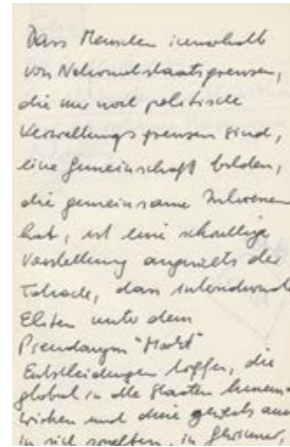 Dass Menschen innerhalb
von Nationalstaatsgrenzen,
die nur noch politische
Verwaltungsgrenzen sind,
eine Gemeinschaft bilden,
die gemeinsame Interessen
hat, ist eine schrullige
Vorstellung angesichts der
Tatsache, dass
Eliten unter dem
Pseudonym "Markt"
Entscheidungen treffen, die
global in alle Staaten hinein-
wirken und diese jeweils auch
in sich spalten, in Gewinner